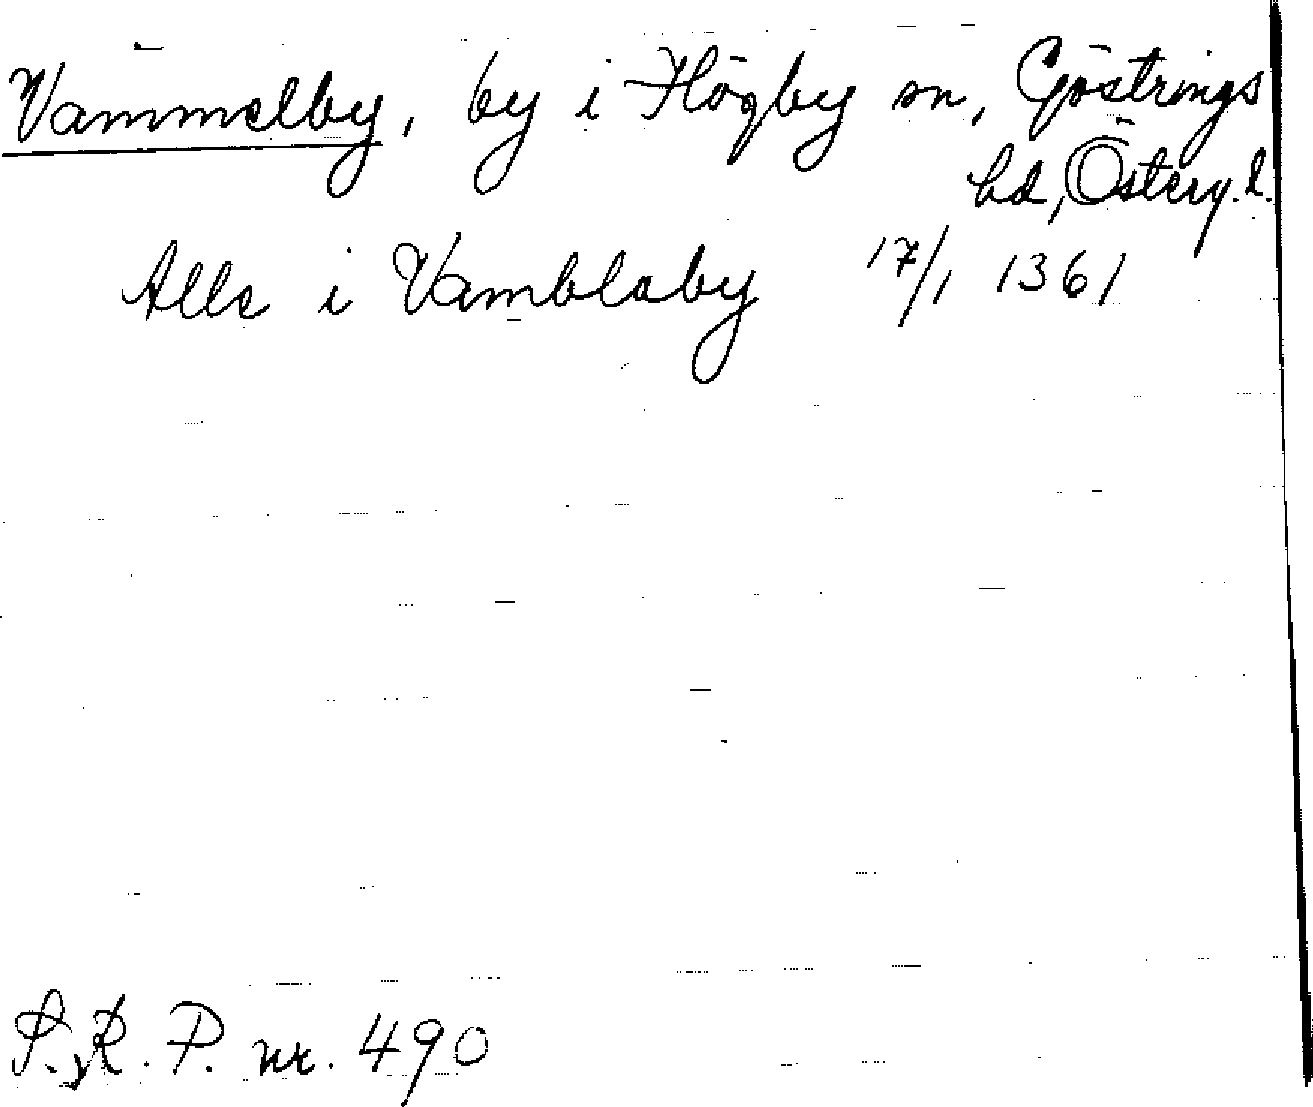 Vammelby, by i Högby sn, Göstrings
hd, Österg. l.
Alle i Vamblaby 17/1 1361
S.R.P. nr. 490